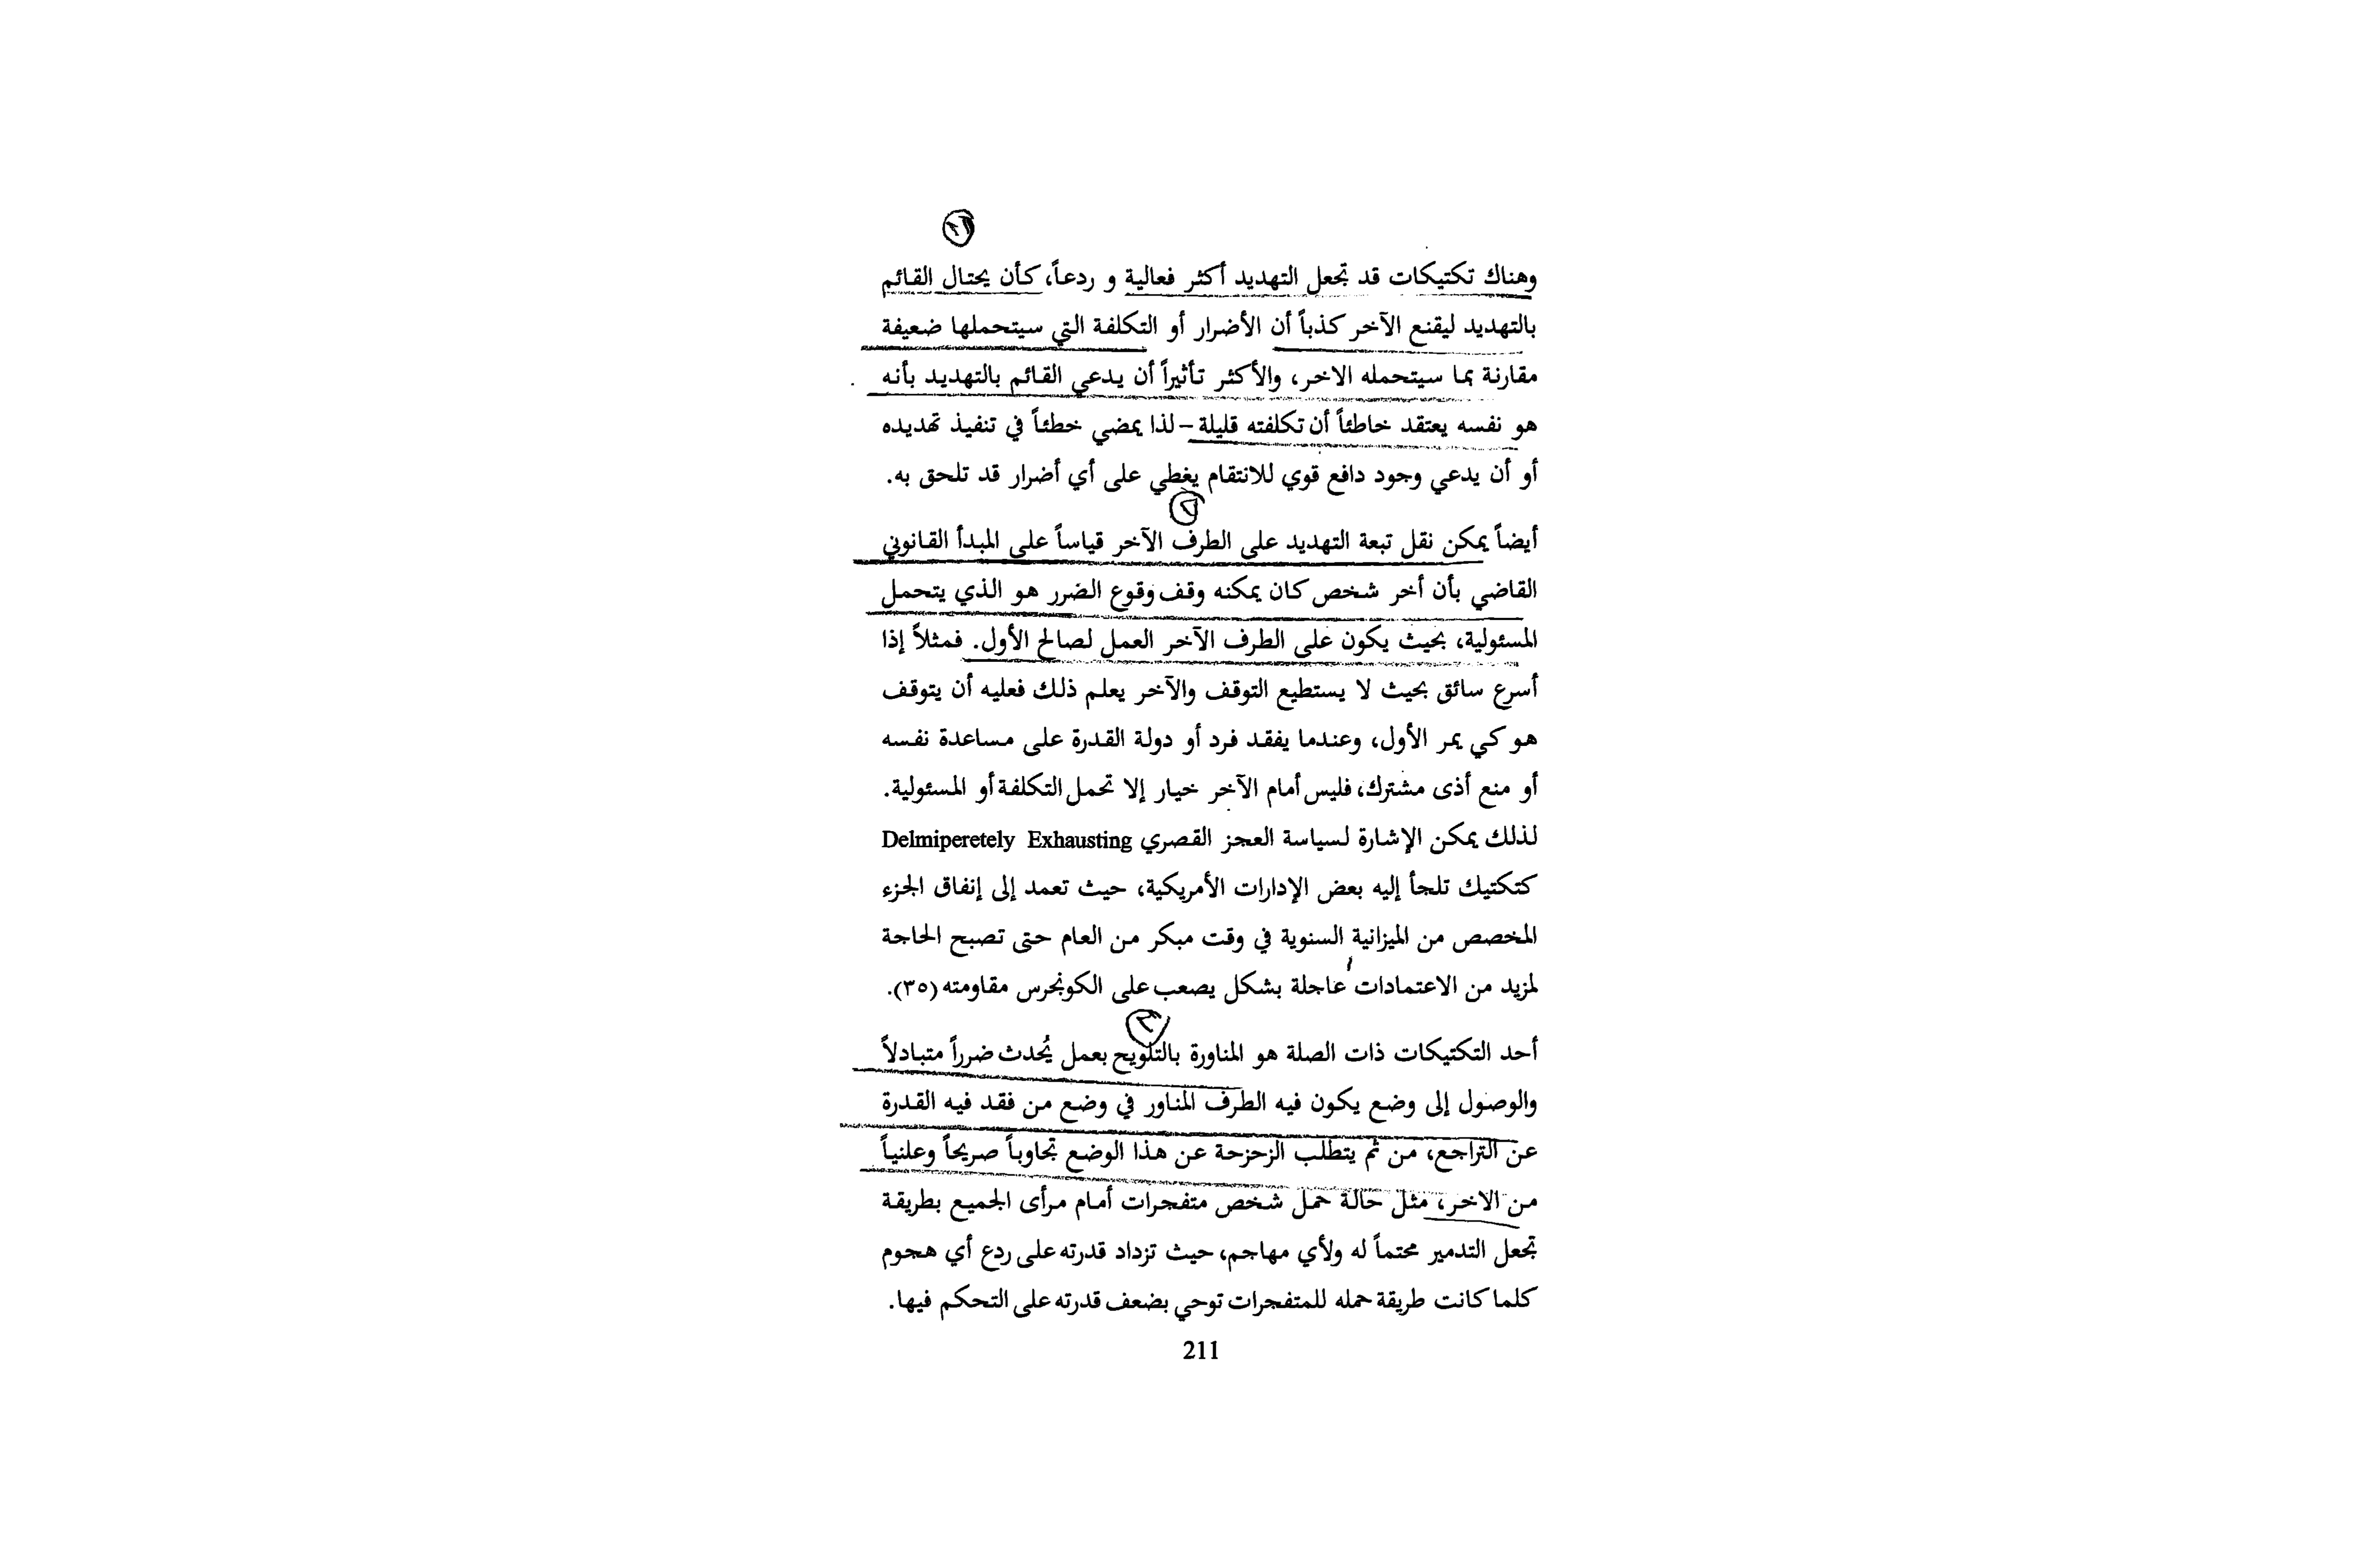 وهناك تكتيكات قد تجعل التهديد أكثر فعالية و ردعاً، كأن يحتال القائم
بالتهديد ليقنع الآخر كذباً أن الأضرار أو التكلفة التي سيتحملها ضعيفة
مقارنة بما سيتحمله الاخر، والأكثر تأثيراً أن يدعي القائم بالتهديد بأنه
هو نفسه يعتقد خاطئاً أن تكلفته قليلة – لذا يمضي خطئاً في تنفيذ تهديده
أو أن يدعي وجود دافع قوي للانتقام يغطي على أي أضرار قد تلحق به.
أيضاً يمكن نقل تبعة التهديد على الطرف الآخر قياساً على المبدأ القانوني
القاضي بأن أخر شخص كان يمكنه وقف وقوع الضرر هو الذي يتحمل
المسئولية، بحيث يكون على الطرف الآخر العمل لصالح الأول. فمثلاً إذا
أسرع سائق بحيث لا يستطيع التوقف والآخر يعلم ذلك فعليه أن يتوقف
هو كي يمر الأول، وعندما يفقد فرد أو دولة القدرة على مساعدة نفسه
أو منع أذى مشترك، فليس أمام الآخر خيار إلا تحمل التكلفة أو المسئولية.
لذلك يمكن الإشارة لسياسة العجز القصري Delmiperetely Exhausting
كتكتيك تلجأ إليه بعض الإدارات الأمريكية، حيث تعمد إلى إنفاق الجزء
المخصص من الميزانية السنوية في وقت مبكر من العام حتى تصبح الحاجة
لمزيد من الاعتمادات عاجلة بشكل يصعب على الكونجرس مقاومته (٣٥).
أحد التكتيكات ذات الصلة هو المناورة بالتلويح بعمل يُحدث ضرراً متبادلاً
والوصول إلى وضع يكون فيه الطرف المناور في وضع من فقد فيه القدرة
عن التراجع، من ثم يتطلب الزحزحة عن هذا الوضع تجاوباً صريحاً وعلنياً
من الاخر، مثل حالة حمل شخص متفجرات أمام مرأى الجميع بطريقة
تجعل التدمير محتماً له ولأي مهاجم، حيث تزداد قدرته على ردع أي هجوم
كلما كانت طريقة حمله للمتفجرات توحي بضعف قدرته على التحكم فيها.
211